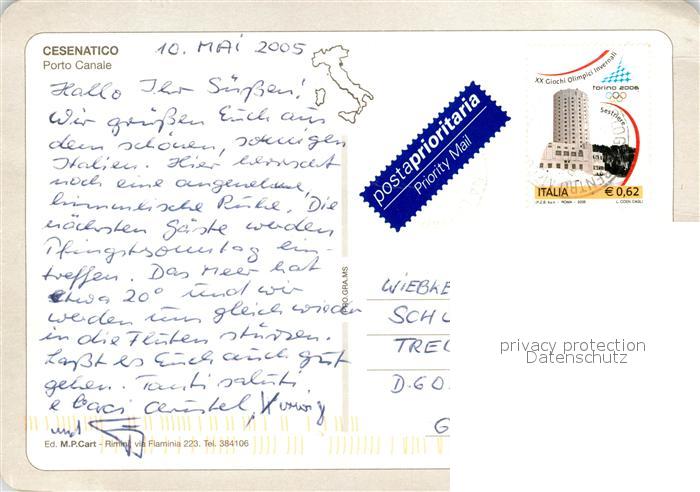 CESENATICO
Porto Canale
10. MAI 2005
Hallo Ihr Süßen!
Wir grüßen Euch aus
dem schönen, sonnigen
Italien. Hier herrscht
noch eine angenehme,
himmlische Ruhe. Die
nächsten Gäste werden
Pfingstsonntag ein-
treffen. Das Meer hat
etwa 20° und wir
werden uns gleich wieder
in die Fluten stürzen.
Laßt es Euch auch gut
gehen. Tanti saluti
e baci
und
Ed. M.P.Cart - Rimini, via Flaminia 223. Tel. 384106
postaprioritaria
Priority Mail
XX Giochi Olimpici Invernali
torino 2006
Sestriere
ITALIA € 0,62
I.P.Z.S. S.p.A. - ROMA - 2005
WIEBKE
SCHU
TREL
D-60
G
privacy protection
Datenschutz